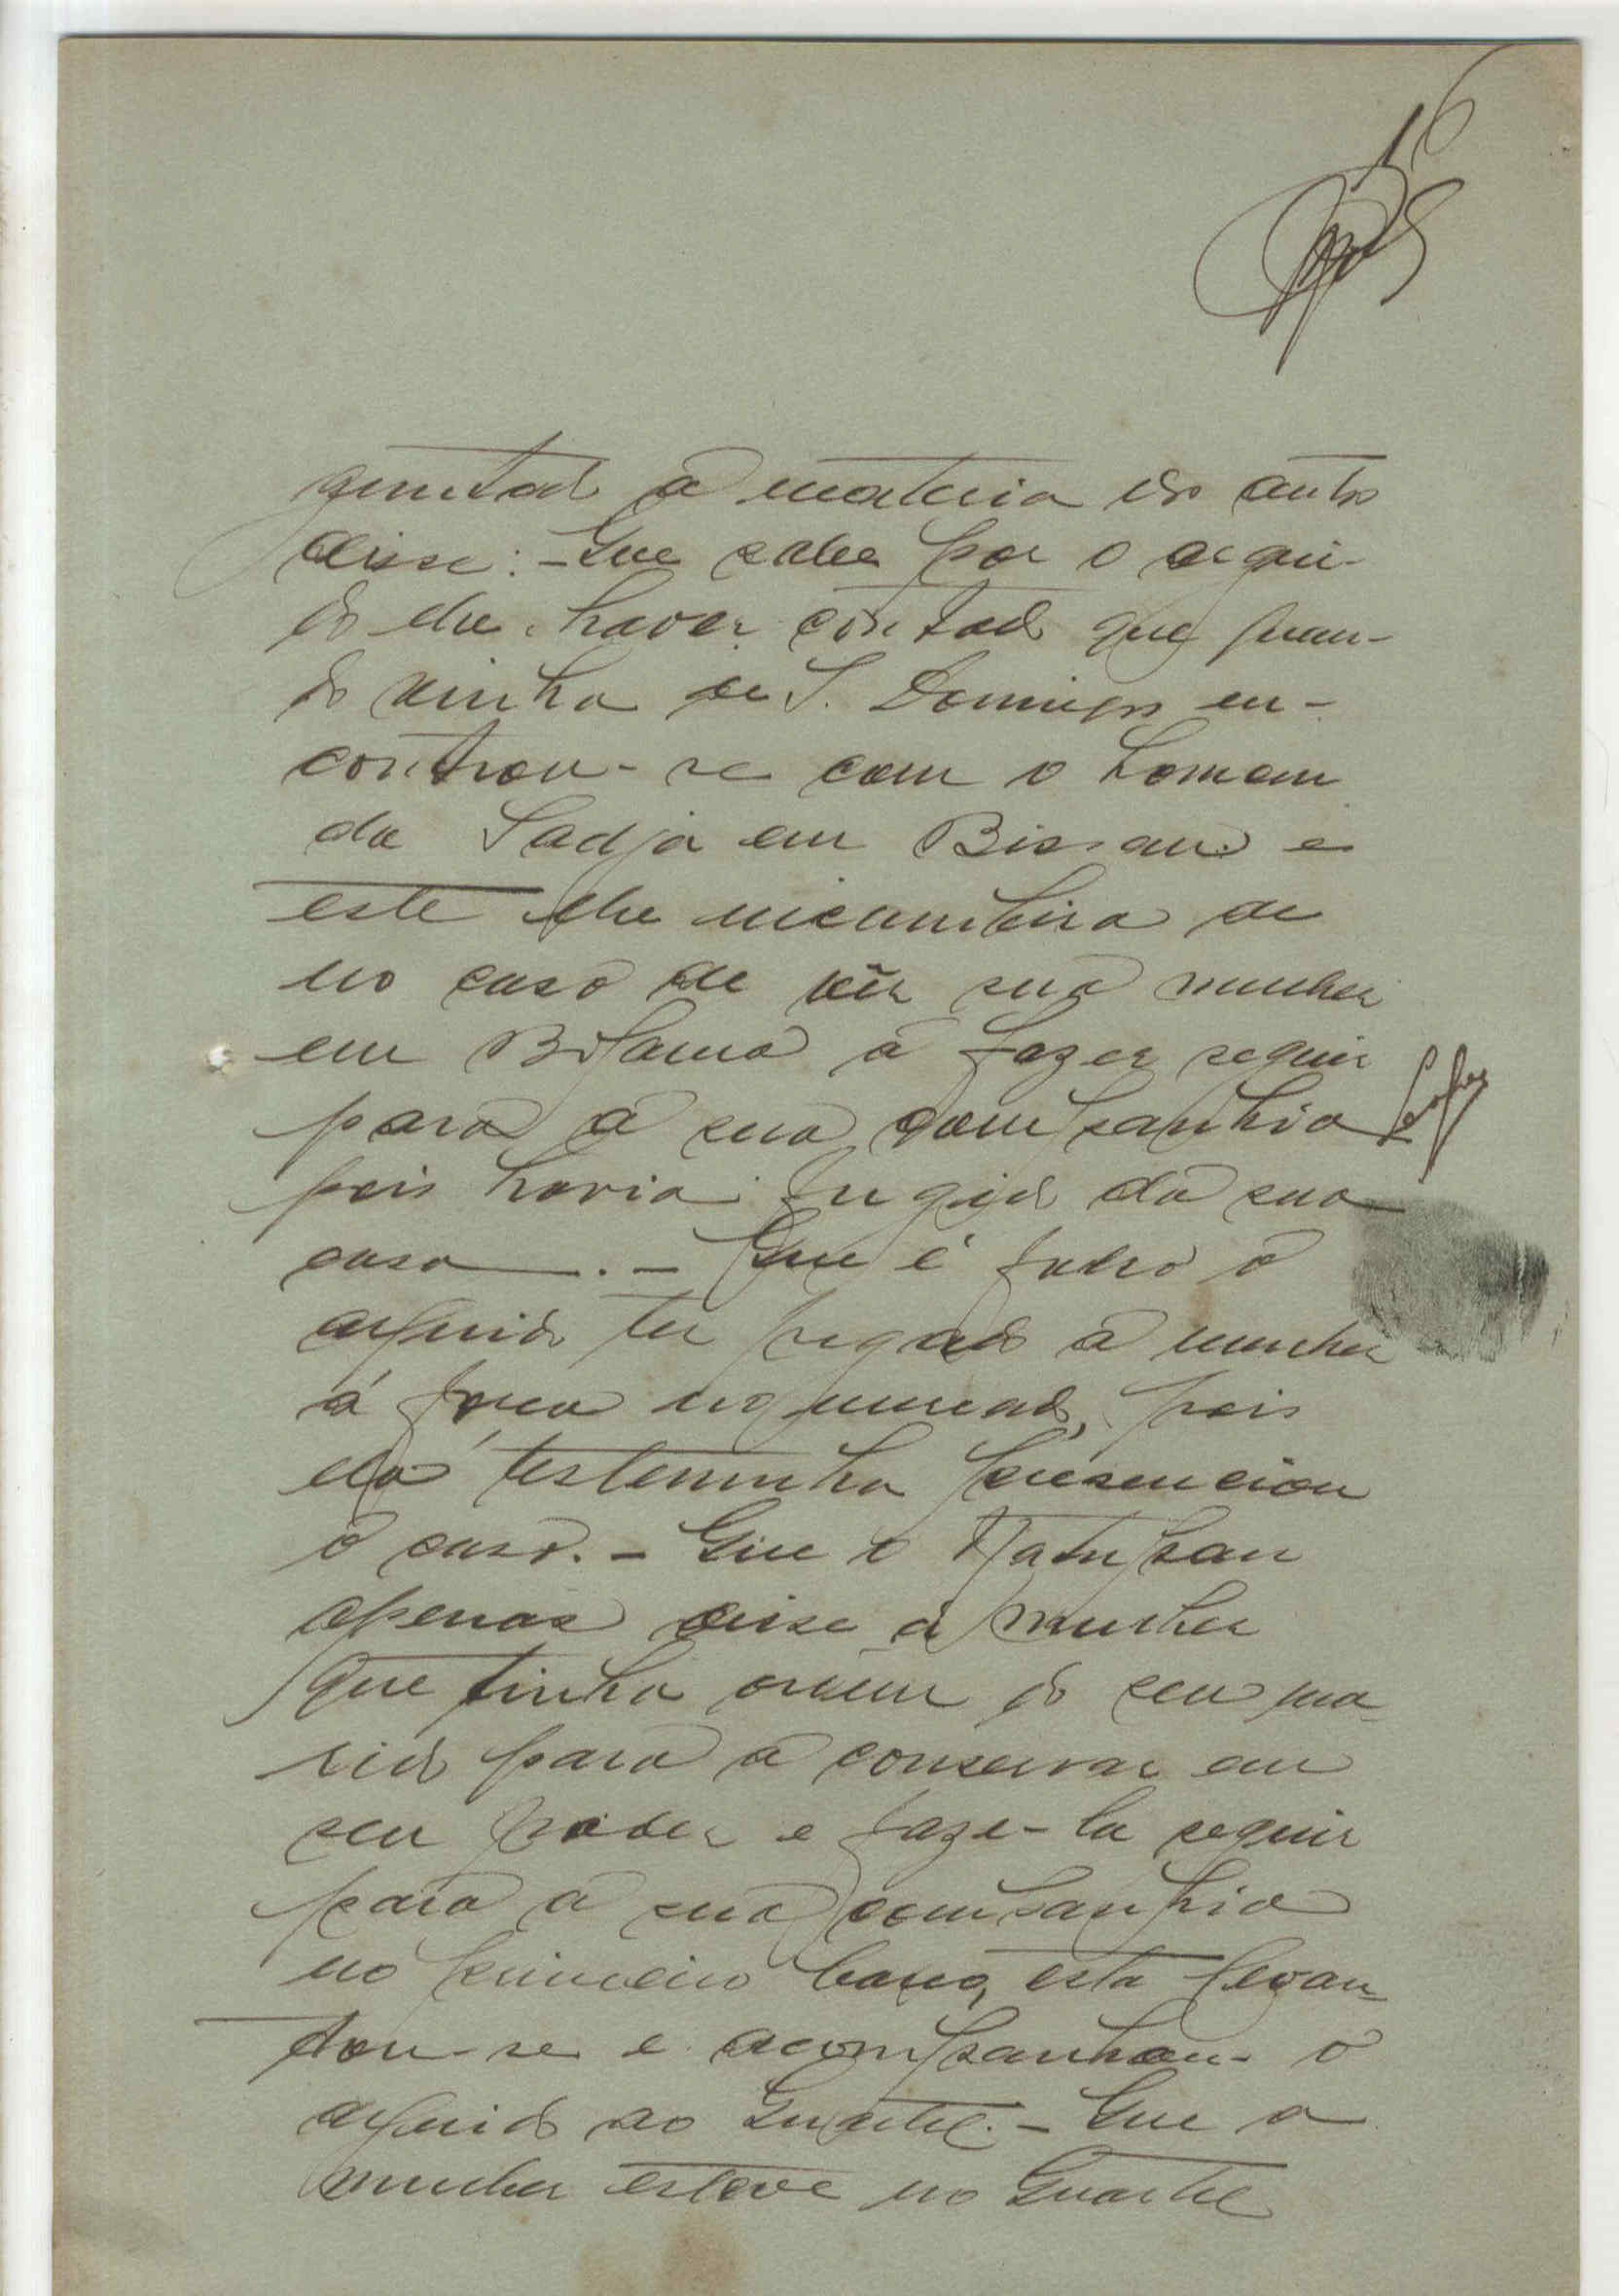 16
guntado á materia do auto
disse: - Que sabe por o argui-
do lhe haver contado que quan-
do vinha de S. Domingos en-
controu-se com o homem
da Sadja em Bissau e
este lhe
no caso de vêr sua mulher
em Bolama a fazer seguir
para a sua companhia
pois havia fugido da sua
casa. - Que é falso o
arguido ter pegado a mulher
á força no mercado, pois
ela testemunha presenciou
o caso. - Que o
apenas disse á mulher
que tinha ordem do seu ma-
rido para a conservar em
seu poder e faze-la seguir
para a sua companhia
no primeiro barco, esta levan-
tou-se e acompanhou o
arguido ao Quartel. - Que a
mulher esteve no Quartel